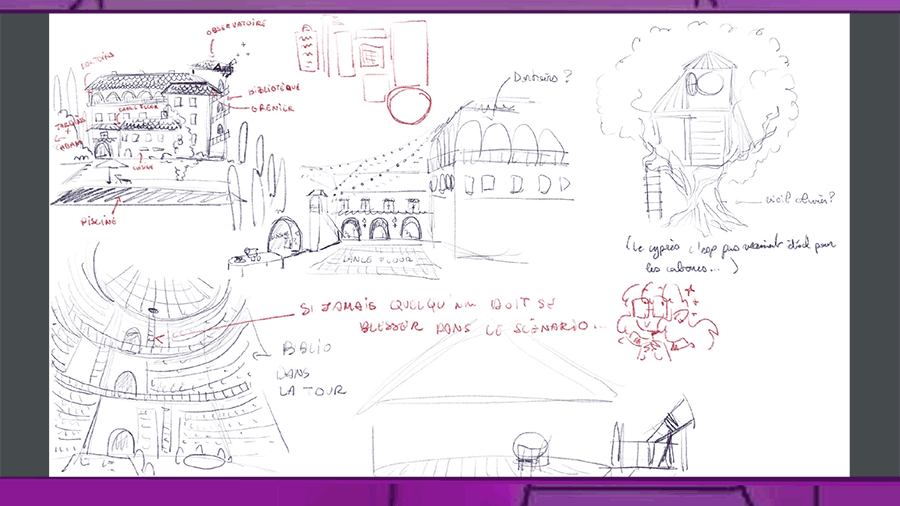 OBSERVATOIRE
DORTOIRS
BIBLIOTÈQUE
GRENIER
PISCINE
Dortoirs ?
DANCE FLOOR
vieil olivier ?
(Le cyprès c'est pas vraiment idéal pour
les cabanes...)
SI JAMAIS QUELQU'UN DOIT SE
BLESSER DANS LE SCÉNARIO...
BIBLIO
DANS
LA TOUR